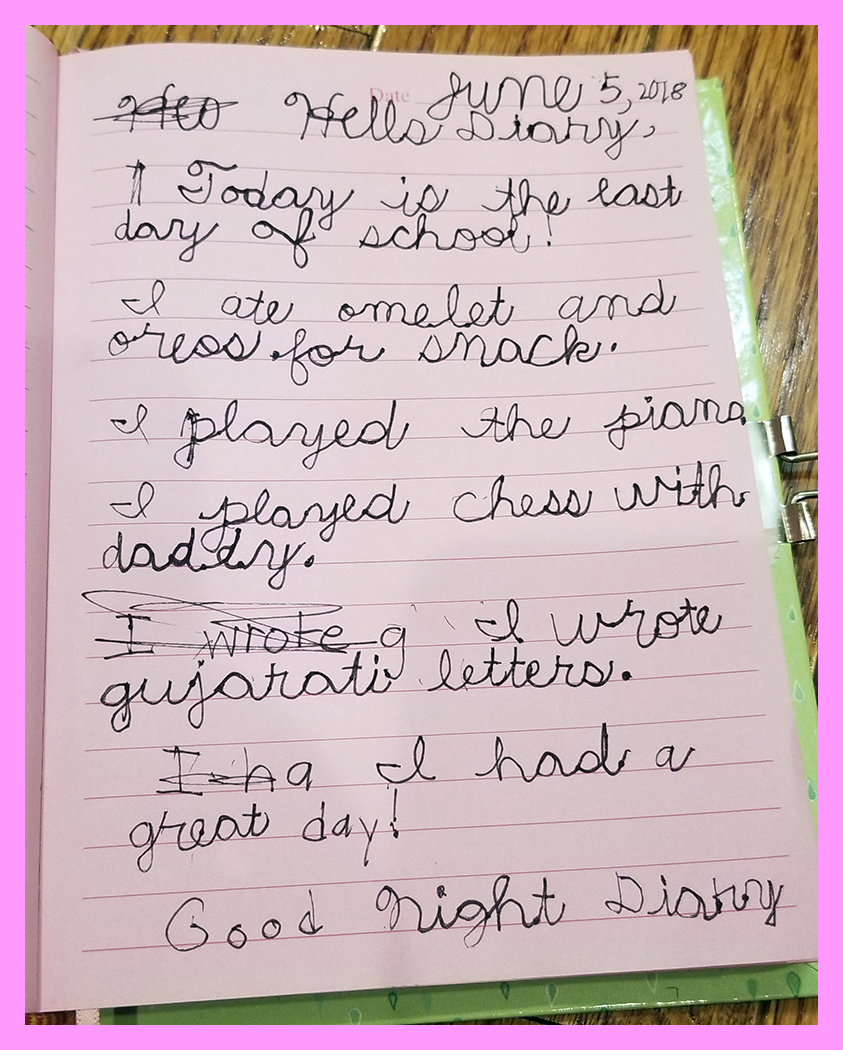 Date June 5, 2018
Hello Diary,
Today is the last
day of school!
I ate omelet and
oreos.for snack.
I played the piano
I played chess with
daddy.
I wrote g I wrote
gujarati letters.
I ha I had a
great day!
Good Night Diary